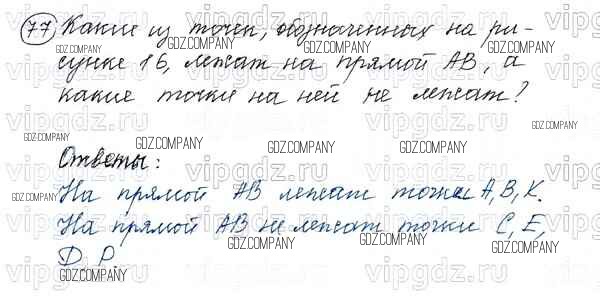 77 Какие из точек, обозначенных на ри-
сунке 16, лежат на прямой АВ, а
какие точки на ней не лежат?
Ответы:
На прямой АВ лежат точки А, В, К.
На прямой АВ не лежат точки С, Е,
D, P.
vipgdz.ru
GDZ.COMPANY